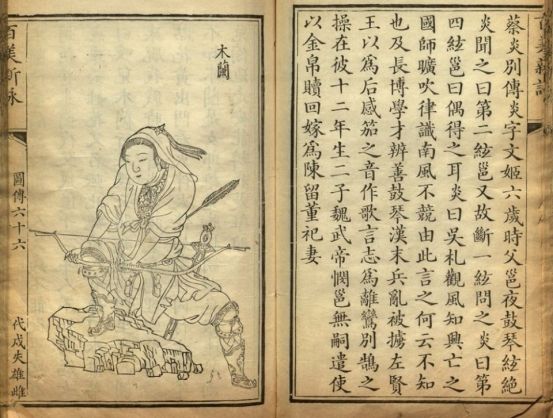 蔡炎別傳炎字文姬六歲時父邕夜鼓琴絃絶
炎聞之曰第二絃邕又故斷一絃問之炎曰第
四絃邕曰偶得之耳炎曰吳札觀風知興亡之
國師曠吹律識南風不競由此言之何云不知
也及長博學才辨善鼓琴漢末兵亂被擄左賢
王以爲后感笳之音作歌言志爲離鸞別鵠之
操在彼十二年生二子魏武帝憫邕無嗣遣使
以金帛贖回嫁爲陳留董祀妻
木蘭
百美新詠
圖傳六十六
代戍失雄雌